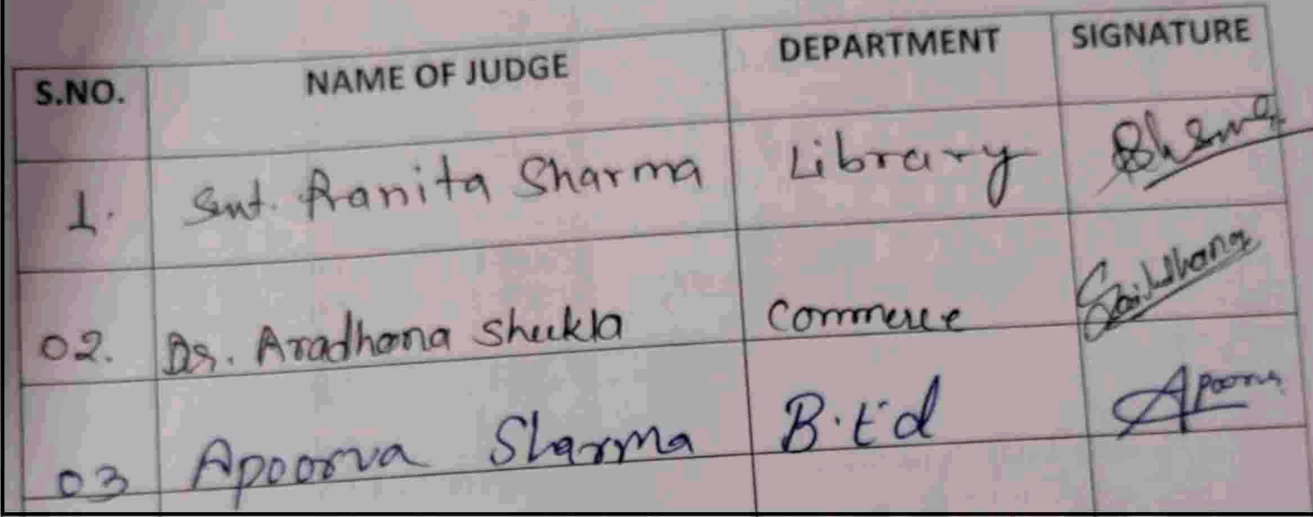 S.NO. NAME OF JUDGE DEPARTMENT SIGNATURE
1. Smt. Ranita Sharma Library
02. Dr. Aradhana Shukla Commerce
03 Apoorva Sharma B.Ed Apoorva